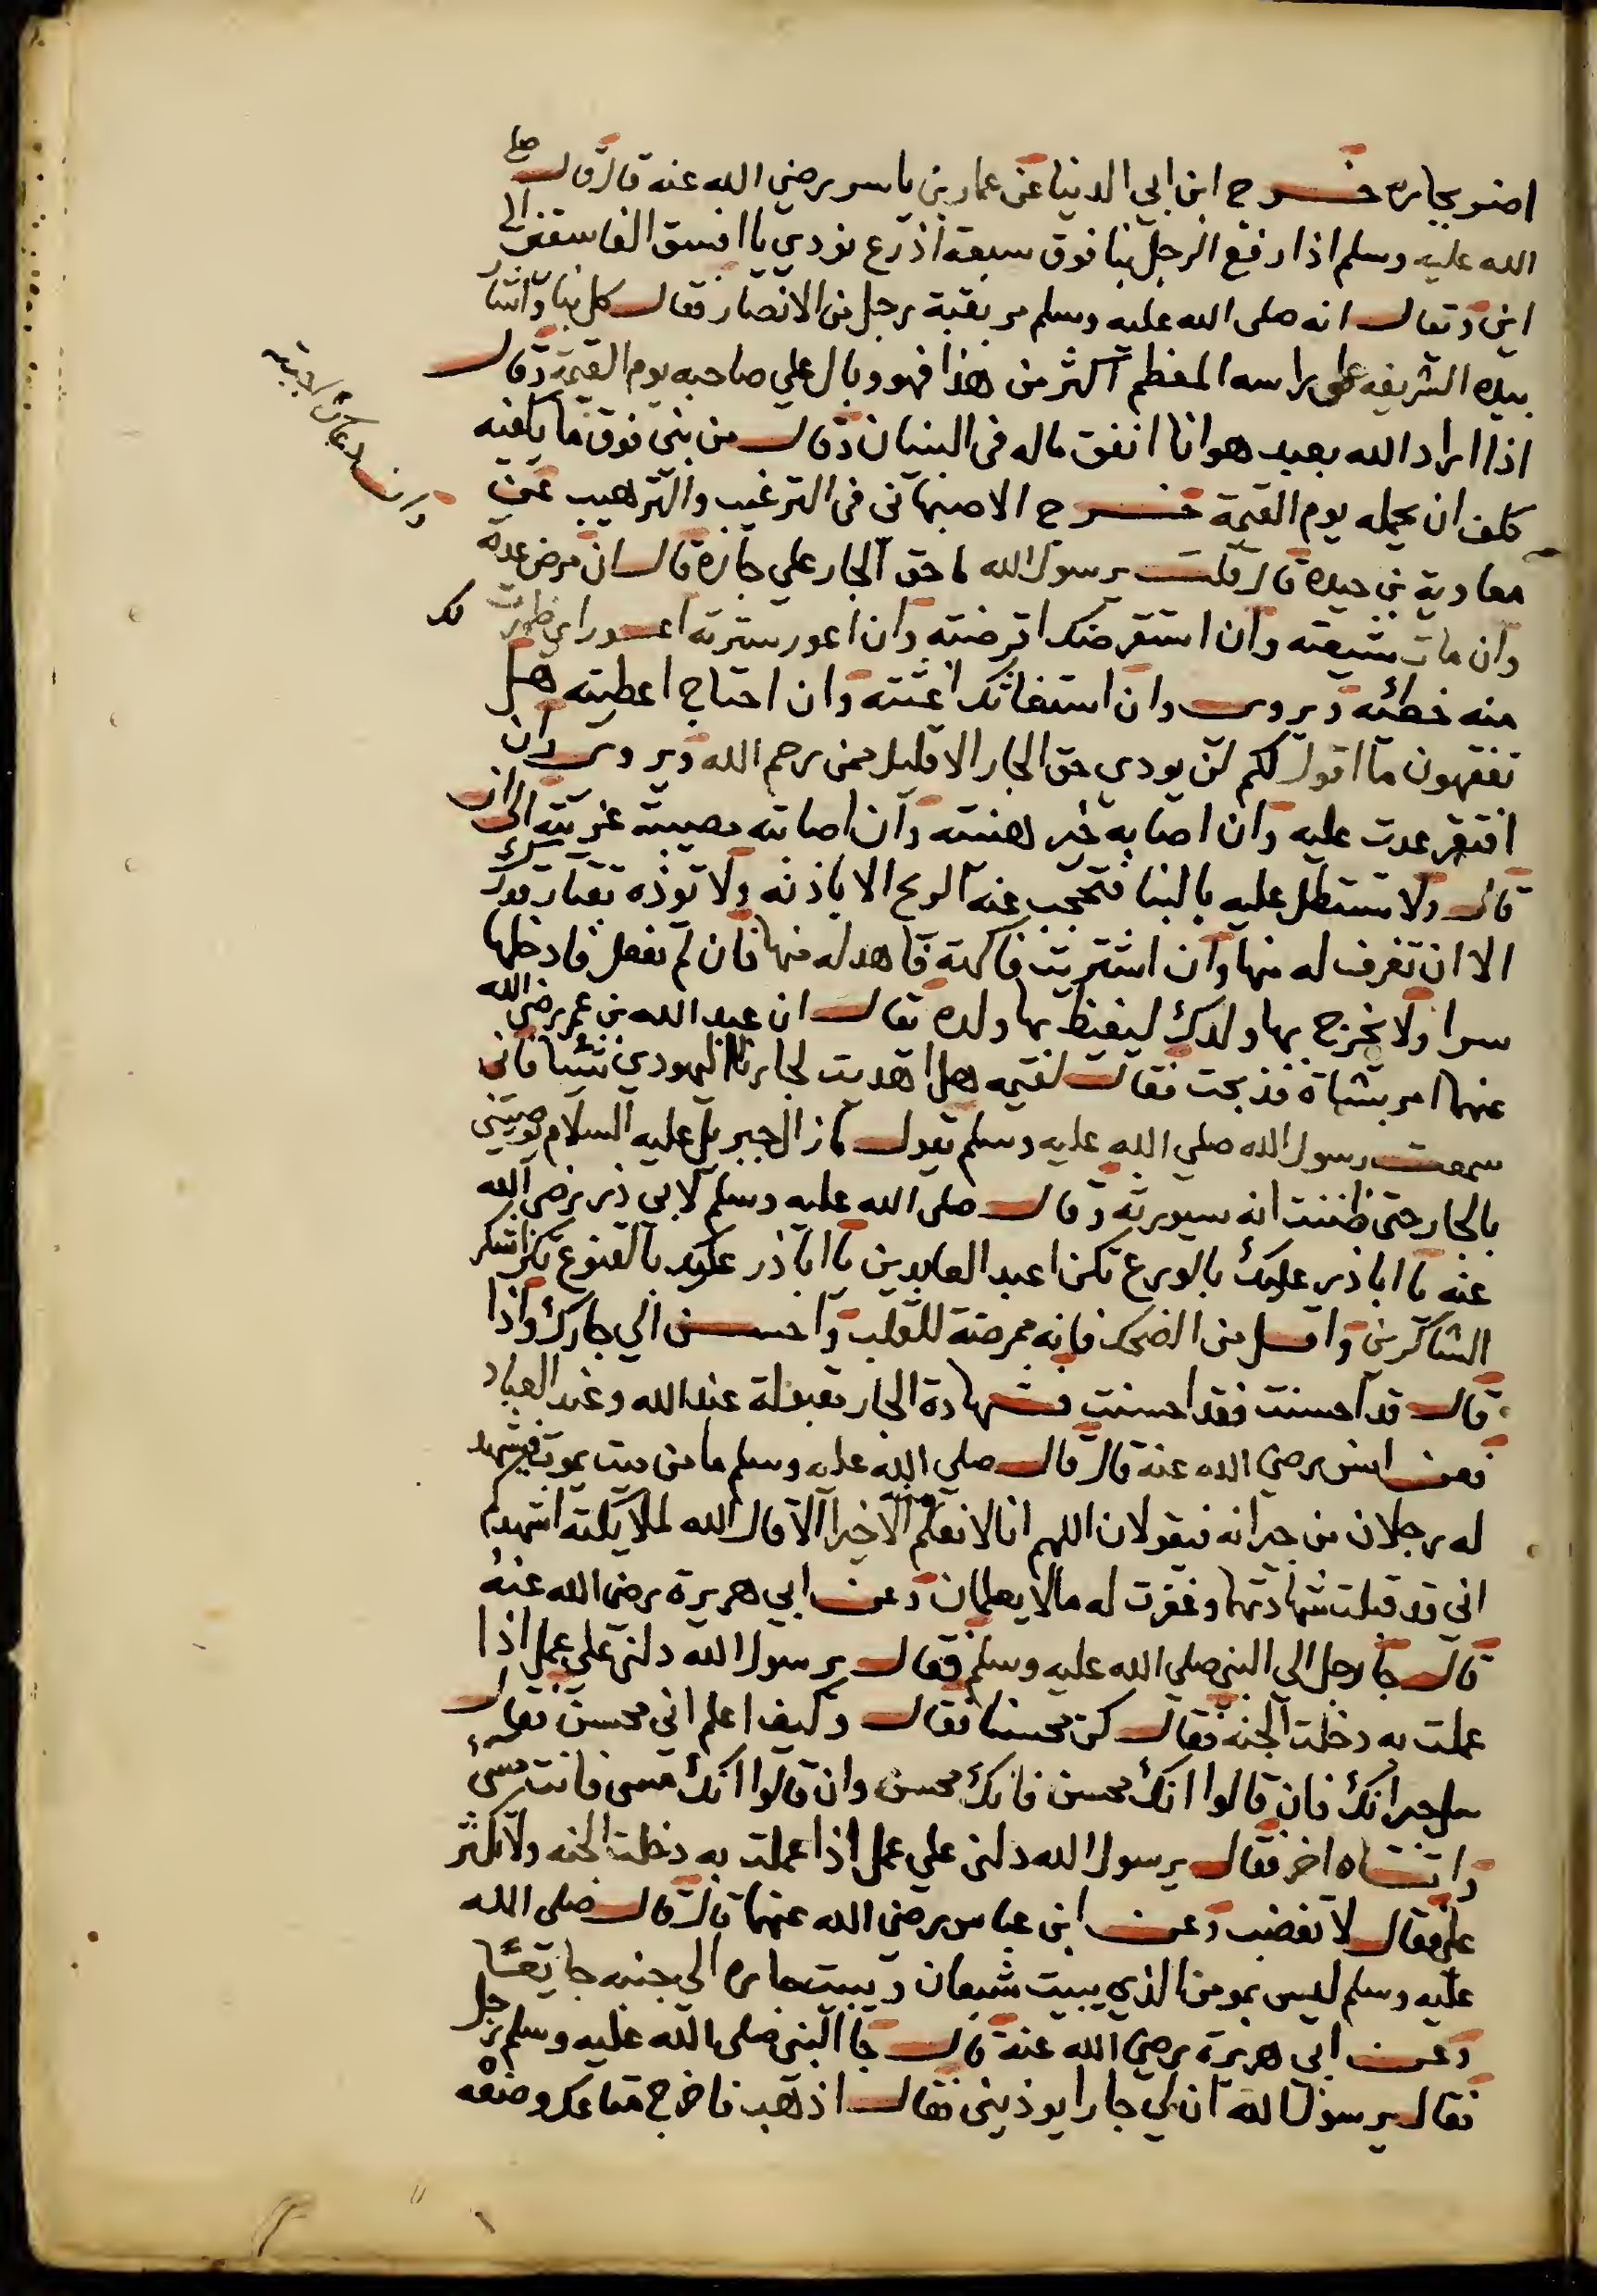 اضر بجاره خرج ابن ابي الدنيا عن عمار بن ياسر رضي الله عنه قال قال صلي
الله عليه وسلم اذا رفع الرجل بنا فوق سبعة اذرع نودي يا افسق الفاسقين الي
اين وقال انه صلى الله عليه وسلم مر بقبة رجل من الانصار فقال كل بنا واشار
بيده الشريفة على راسه المعظم اكثر من هذا فهو وبال علي صاحبه يوم القيمة وقال
اذا اراد الله بعبد هوانا انفق ماله في البنيان وقال من بنى فوق ما يكفيه
كلف ان يحمله يوم القيمة خرج الاصبهاني في الترغيب والترهيب عن
معاوية بن حيدة قال قلت يرسول الله ما حق الجار علي جاره قال ان مرض عدته
وان مات شيعته وان استقرضك اقرضته وان اعور سترته اعور اي ظهرت لك
منه خطئه ويروى وان استغاثك اغثته وان احتاج اعطيته هل
تفقهون ما اقول لكم لن يودي حق الجار الا قليل ممن رحم الله ويروى وان
افتقر عدت عليه وان اصابه خير هنيته وان اصابته مصيبة عزيته الى ان
قال ولا تستطل عليه بالبنا فتحجب عنه الريح الا باذنه ولا توذه بقتار قدرك
الا ان تغرف له منها وان اشتريت فاكهة فاهد له منها فان لم تفعل فادخلها
سرا ولا يخرج بها ولدك ليغيظ بها ولده يقال ان عبد الله بن عمر رضي الله
عنهما امر بشاة فذبحت فقال لقيمه هل اهديت لجارنا اليهودي شيا فاني
سمعت رسول الله صلي الله عليه وسلم يقول ما زال جبريل عليه السلام يوصيني
بالجار حتى ظننت انه سيورثه وقال صلى الله عليه وسلم لابي ذر رضي الله
عنه يا اباذر عليك بالورع تكن اعبد العابدين يا اباذر عليك بالقنوع تكن اشكر
الشاكرين واقل من الضحك فانه ممرضة للقلب واحسن الي جارك واذا
قال قد احسنت فقد احسنت فشهادة الجار مقبولة عند الله وعند العباد
فعن انس رضي الله عنه قال قال صلي الله عليه وسلم ما من ميت يموت فيشهد
له رجلان من جيرانه فيقولان اللهم انا لا نعلم الا خيرا الا قال الله لملايكته اشهدكم
اني قد قبلت شهادتهما وغفرت له ما لا يعلمان وعن ابي هريرة رضي الله عنه
قال جا رجل الى النبي صلي الله عليه وسلم فقال يرسول الله دلني علي عمل اذا
عملت به دخلت الجنة فقال كن محسنا فقال وكيف اعلم اني محسن فقال
سل جيرانك فان قالوا انك محسن فانك محسن وان قالوا انك مسى فانت مسئ
واتاه اخر فقال يرسول الله دلني علي عمل اذا عملت به دخلت الجنه ولا تكثر
علي فقال لا تغضب وعن ابن عباس رضي الله عنهما قال قال صلى الله
عليه وسلم ليس بمومن الذي يبيت شبعان ويبيت جاره الي جنبه جايعا
وعن ابي هريرة رضي الله عنه قال جا النبي صلى الله عليه وسلم رجل
فقال يرسول الله ان لي جارا يوذيني فقال اذهب فاخرج متاعك وضعه